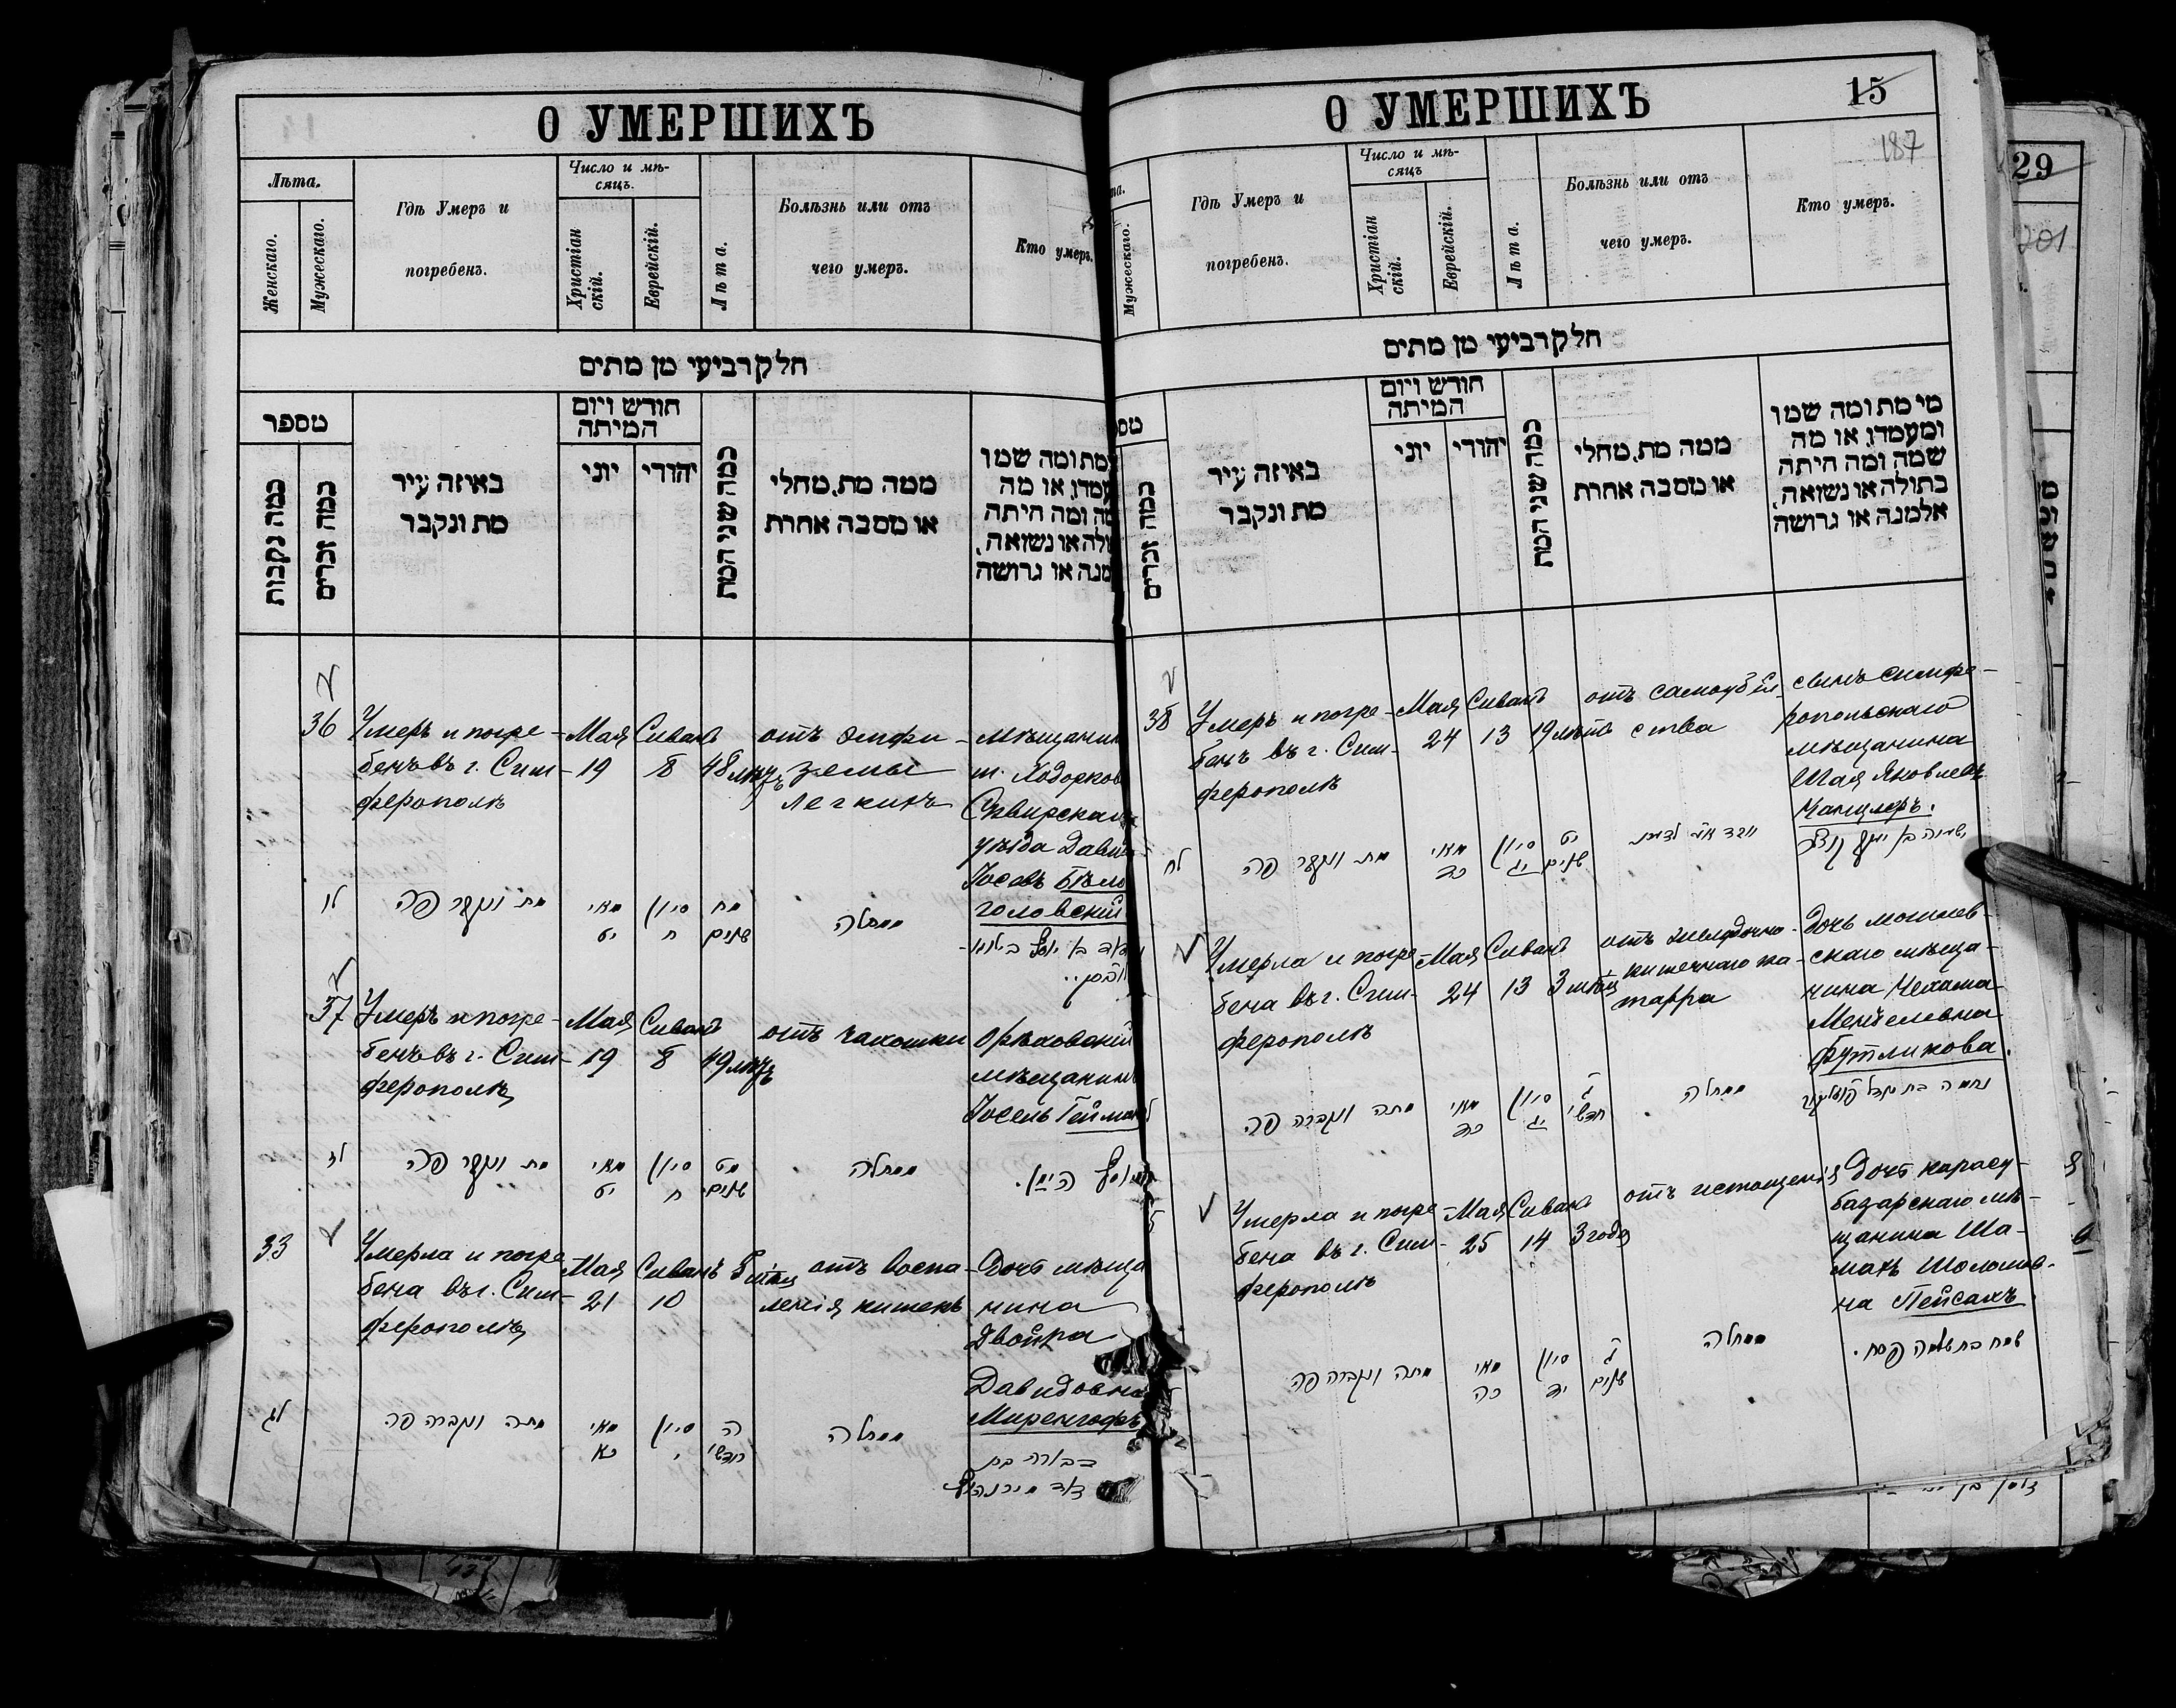 О УМЕРШИХЪ
Лѣта.
Женскаго.
Мужескаго.
Гдѣ Умеръ и
погребенъ.
Число и мѣ-
сяцъ.
Христіан
скій.
Еврейскій.
Лѣта.
Болѣзнь или отъ
чего умеръ.
Кто умеръ.
חלק רביעי מן מתים
מספר
כמה נקבות
כמה זכרים
באיזה עיר
מת ונקבר
חודש ויום
המיתה
יוני
יהודי
כמה שני המת
ממה מת, מחלי
או מסבה אחרת
מת ומה שמו
עמדו, או מה
מה ומה היתה
ולה או נשואה,
מנה או גרושה
36
Умеръ и погре-
бенъ въ г. Сим-
ферополѣ
Мая
19
Сиванъ
8
48 лѣтъ
отъ эмфи-
земы
легкихъ
мѣщанин
м. Ходорков
Сквирскаго
уѣзда Давид
Іосевъ Бѣло
головскій
לו
מת ונקבר פה
מאי
יט
סיון
ח
מח
שנים
ממחלה
37
Умеръ и погре-
бенъ въ г. Сим-
ферополѣ
Мая
19
Сиванъ
8
49 лѣтъ
отъ чахотки
Орѣховскій
мѣщанинъ
Іосель Гейман
לז
מת ונקבר פה
מאי
יט
סיון
ח
מט
שנים
ממחלה
יוסף היימן.
33
Умерла и погре
бена въ г. Сим-
ферополѣ
Мая
21
Сиванъ
10
5 мѣсяц
отъ воспа-
ленія кишекъ
Дочь мѣща
нина
Двойра
Давидовна
Миренгофъ
לג
מתה ונקברה פה
מאי
כא
סיון
י
ה
חדשי
ממחלה
דבורה בת
דוד מירנהוף
О УМЕРШИХЪ
15
187
та.
Мужескаго.
Гдѣ Умеръ и
погребенъ.
Число и мѣ-
сяцъ
Христіан
скій.
Еврейскій.
Лѣта.
Болѣзнь или отъ
чего умеръ.
Кто умеръ.
חלק רביעי מן מתים
מס
כמה זכרים
באיזה עיר
מת ונקבר
חודש ויום
המיתה
יוני
יהודי
כמה שני המת
ממה מת, מחלי
או מסבה אחרת
מי מת ומה שמו
ומעמדו, או מה
שמה ומה היתה
בתולה או נשואה,
אלמנה או גרושה
38
Умеръ и погре-
бенъ въ г. Сим-
ферополѣ
Мая
24
Сиванъ
13
19 лѣтъ
отъ самоубій
ства
сынъ симфе-
ропольскаго
мѣщанина
Шая Яковлевъ
Канцлеръ.
לח
מת ונקבר פה
מאי
כד
סיון
יג
יט
שנים
Умерла и погре
бена въ г. Сим-
ферополѣ
Мая
24
Сиванъ
13
3 мѣсяц
отъ желудочно-
кишечнаго ка-
тарра
Дочь могилев-
скаго мѣща-
нина Нехама
Менделевна
Футликова.
מתה ונקברה פה
מאי
כד
סיון
יג
ג
חדשי
ממחלה
Умерла и погре
бена въ г. Сим-
ферополѣ
Мая
25
Сиванъ
14
3 года
отъ истощенія
Дочь карасу-
базарскаго мѣ-
щанина Ша-
махъ Шоломов-
на Пейсахъ.
מתה ונקברה פה
מאי
כה
סיון
יד
ג
שנים
ממחלה
שמח בת שלמה פסח.
29
201